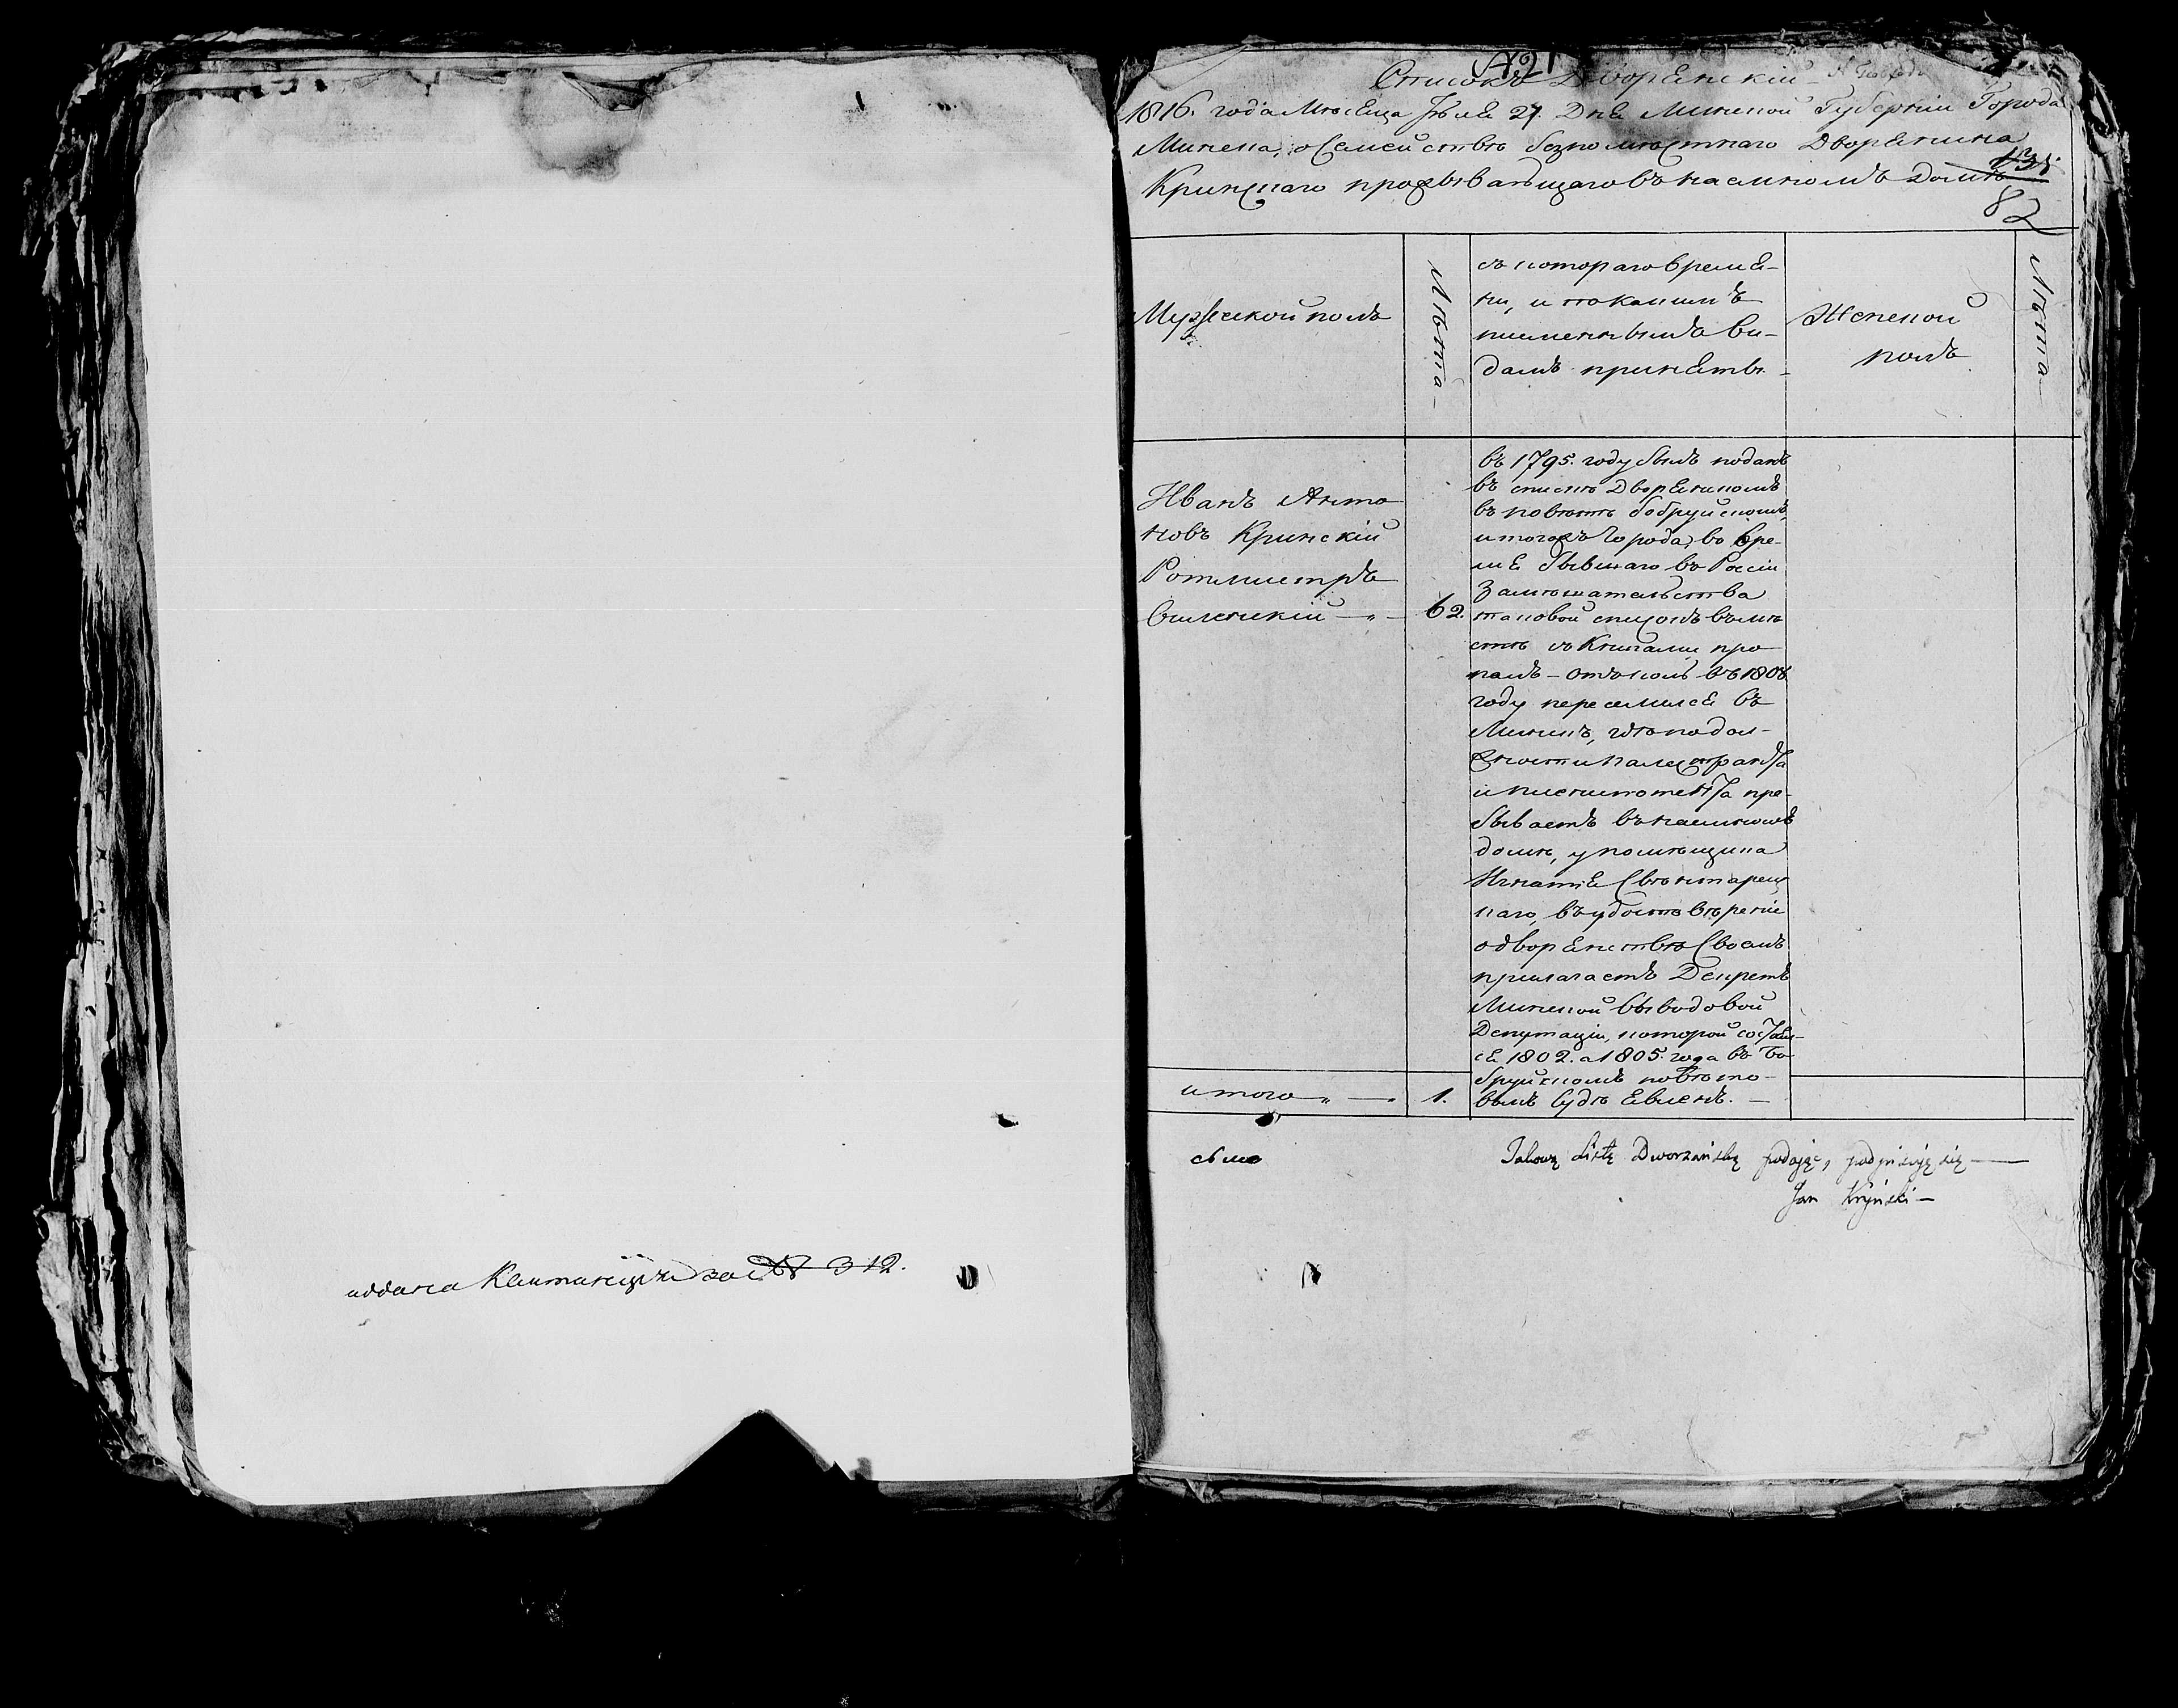 иддана Квитанция за № 312.
421
Списокъ Дворянскій
1816. года Мѣсяца Іюля 27. Дня Минской Губерніи Города
Минска, о Семействѣ безпомѣстнаго Дворянина
Кринскаго прозываящаго въ наемномъ домѣ
82
Мужеской полъ
Лѣта
съ котораго време-
ни, и по какимъ
писменнымъ ви-
дамъ принятъ.
Женской
полъ
Лѣта
Иванъ Анто
новъ Кринскій
Ротмистръ
виленскій
62.
въ 1795. году былъ поданъ
въ спискѣ Дворяниномъ
въ повѣтѣ бобруйскомъ,
и тогожъ Города, во вре-
мя бывшаго въ Россіи
Замѣшательства
таковой списокъ вмѣ
стѣ съ Книгами про
палъ – отъколь въ 1808
году переселился въ
Минскъ, гдѣ по дол-
жности Палестранта
и Пленипотента пре-
бываетъ въ наемномъ
домѣ, у помѣщика
Игнатія Свентарец
каго, въ удостовѣреніе
о дворянствѣ своемъ
прилагаетъ Декретъ
Минской выводовой
Депутаціи, которой состоял-
ся 1802. а 1805. года въ Бо
бруйскомъ повѣто-
вымъ Судѣ явленъ.
итого
1.
Takową Listę Dworzańską podając, podpisuję się
Jan Kryński